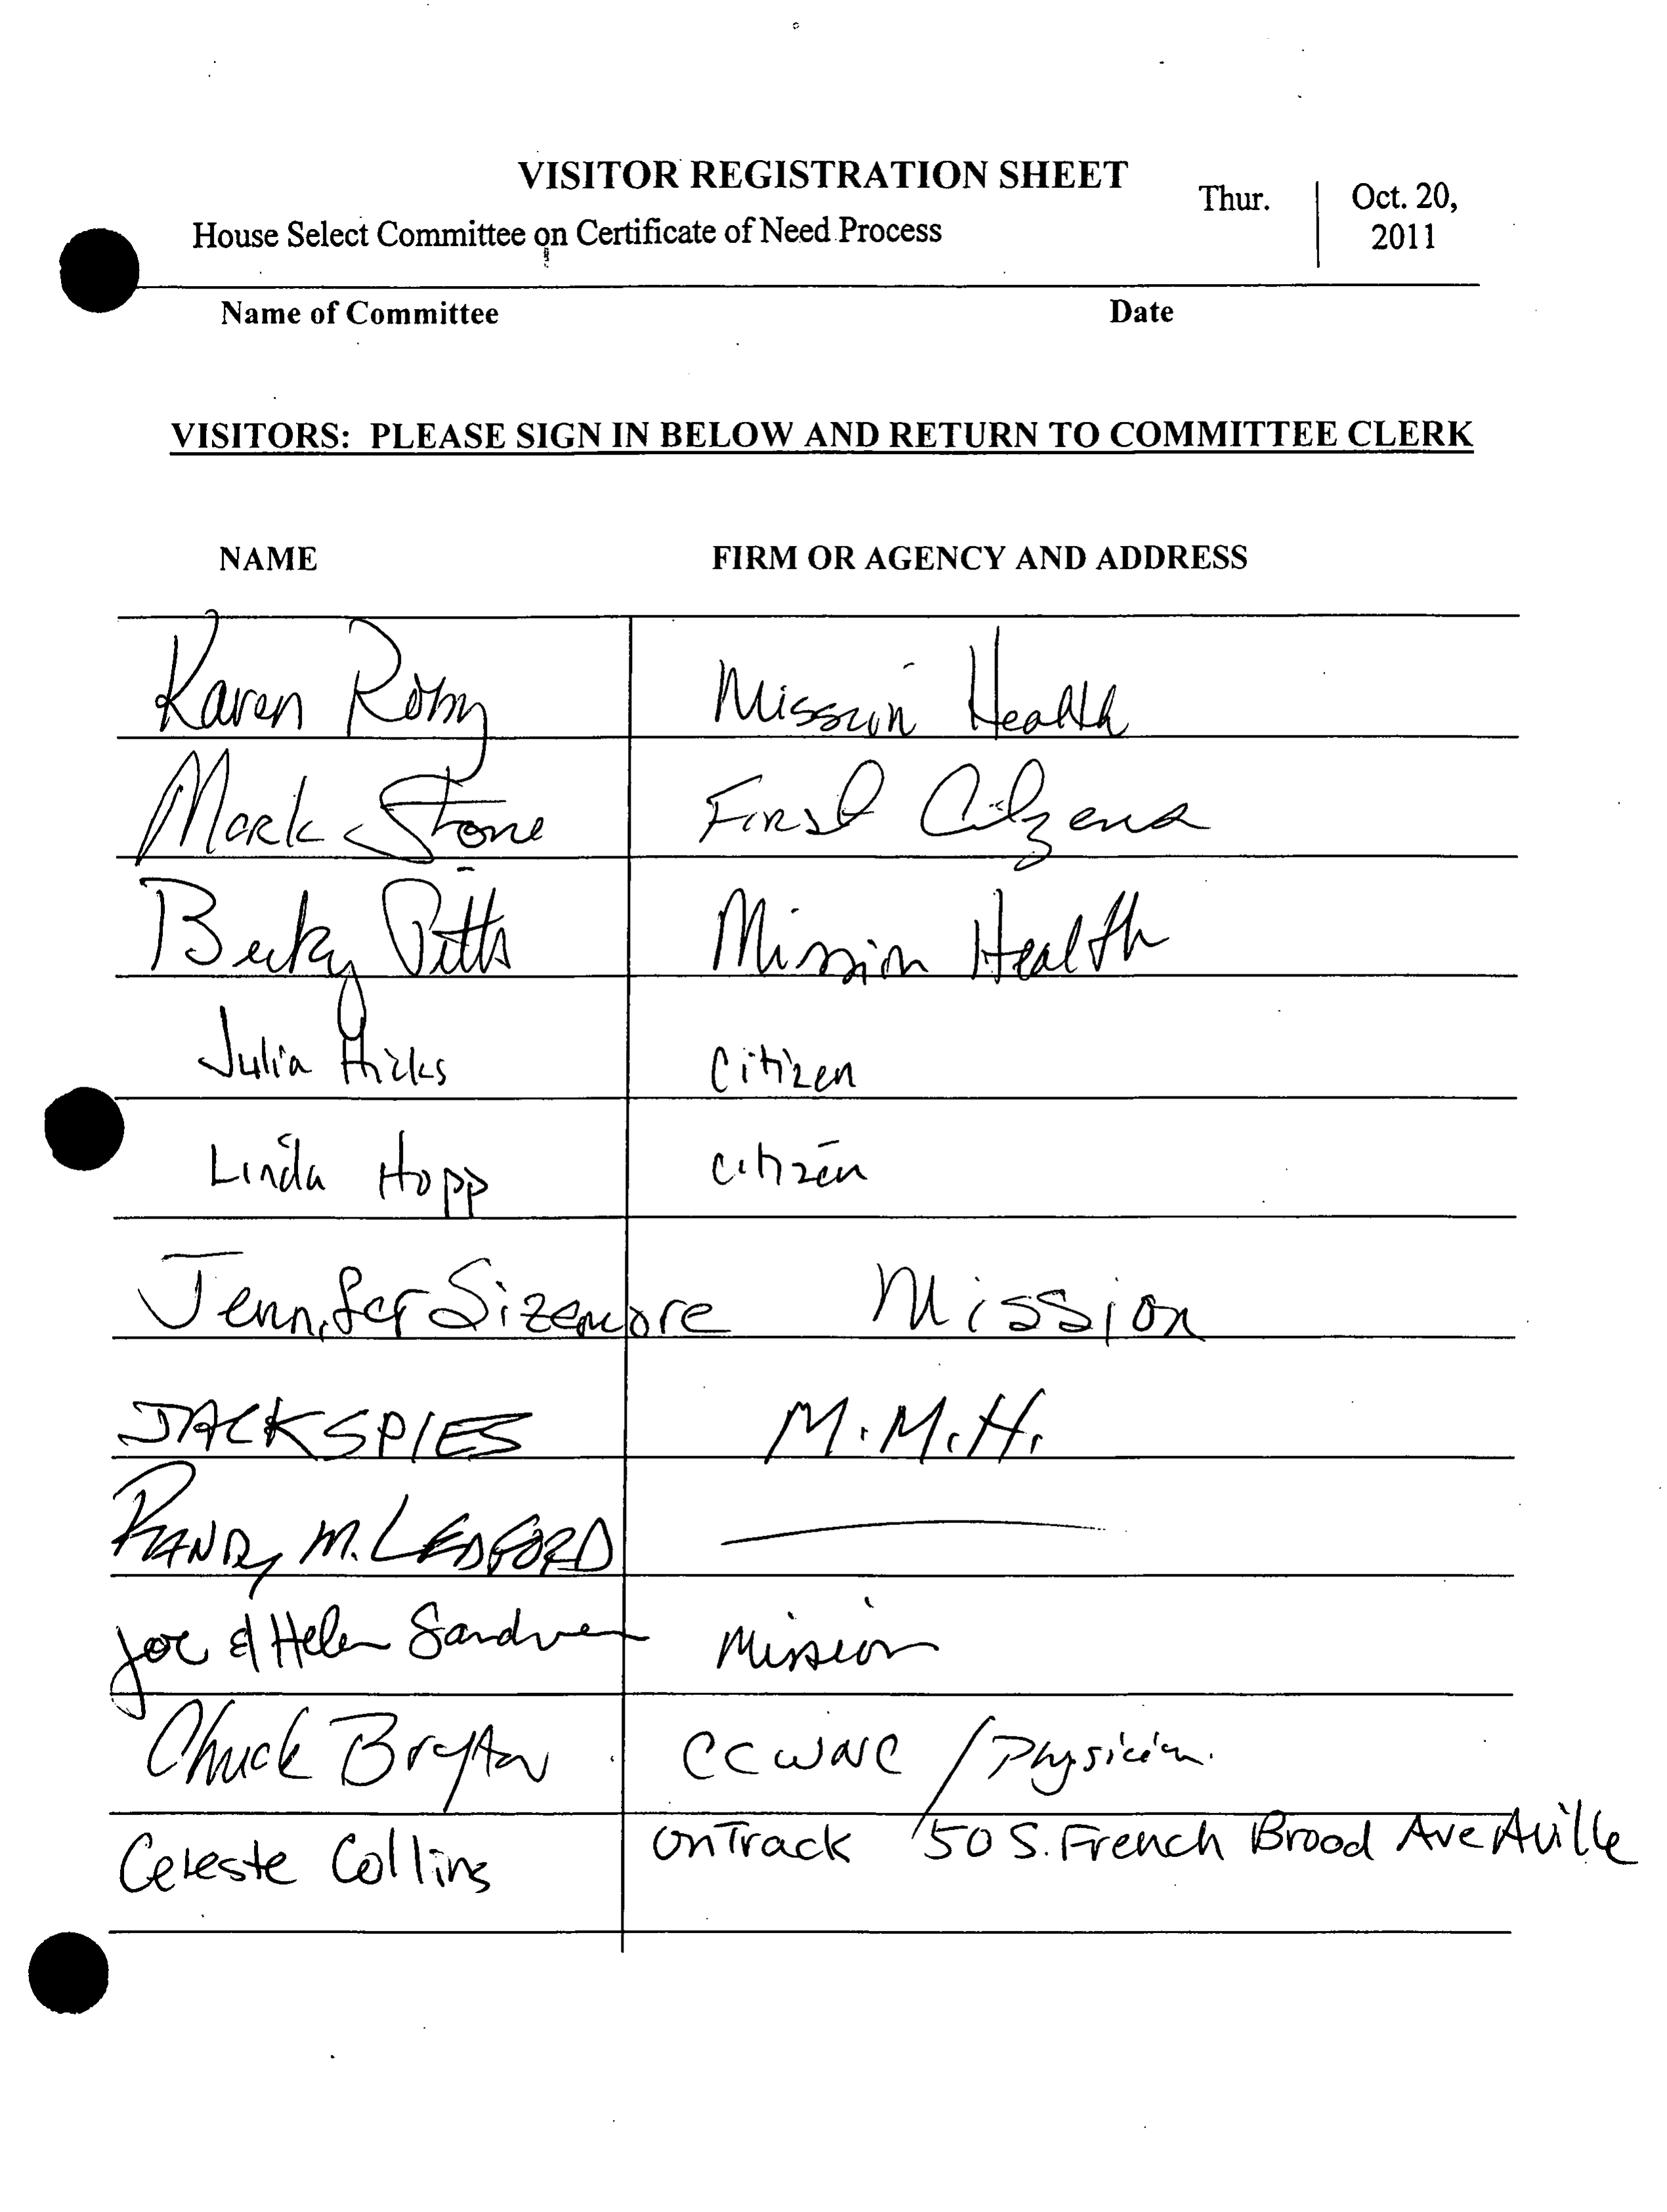 VISITOR REGISTRATION SHEET
Thur. Oct. 20,
2011
House Select Committee on Certificate of Need Process
Name of Committee Date
VISITORS: PLEASE SIGN IN BELOW AND RETURN TO COMMITTEE CLERK
NAME FIRM OR AGENCY AND ADDRESS
Karen Roby Mission Health
Mark Stone First Citizens
Becky Pitts Mission Health
Julia Hicks Citizen
Linda Hopp Citizen
Jennifer Sizemore Mission
JACK SPIES M.M.H.
RANDY M. LEDFORD
Joe & Helen Mission
Chuck CCWNC / Physician
Celeste Collins OnTrack 50 S. French Broad Ave Aville